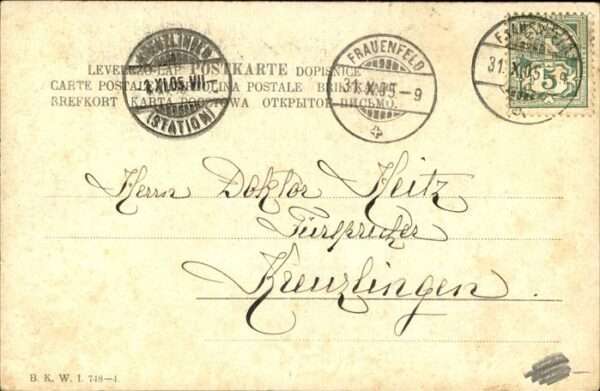 KREUZLINGEN
1.XI.05.VII
(STATION)
FRAUENFELD
31.X.05.-9
FRAUENFELD
31.X.05.-9
5
LEVELEZŐ-LAP POSTKARTE DOPISNICE
CARTE POSTALE POSTALE
BREFKORT КАРТА ПОСТОВА ОТКРЫТОЕ ПИСЬМО.
Herrn Doktor Heitz
Fürsprecher
Kreuzlingen.
B. K. W. I. 748-4.